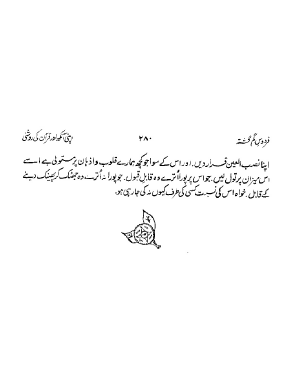 فردوسِ گم گشتہ ۲۸۰ اپنی آنکھ اور قرآن کی روشنی
اپنا نصب العین قرار دیں۔ اور اس کے سوا جو کچھ ہمارے قلوب و اذہان پر مستولی ہے اسے
اس میزان پر تول لیں۔ جو اس پر پورا اُترے وہ قابلِ قبول۔ جو پورا نہ اُترے، وہ جھٹک کر پھینک دینے
کے قابل۔ خواہ اس کی نسبت کسی کی طرف کیوں نہ کی جا رہی ہو۔